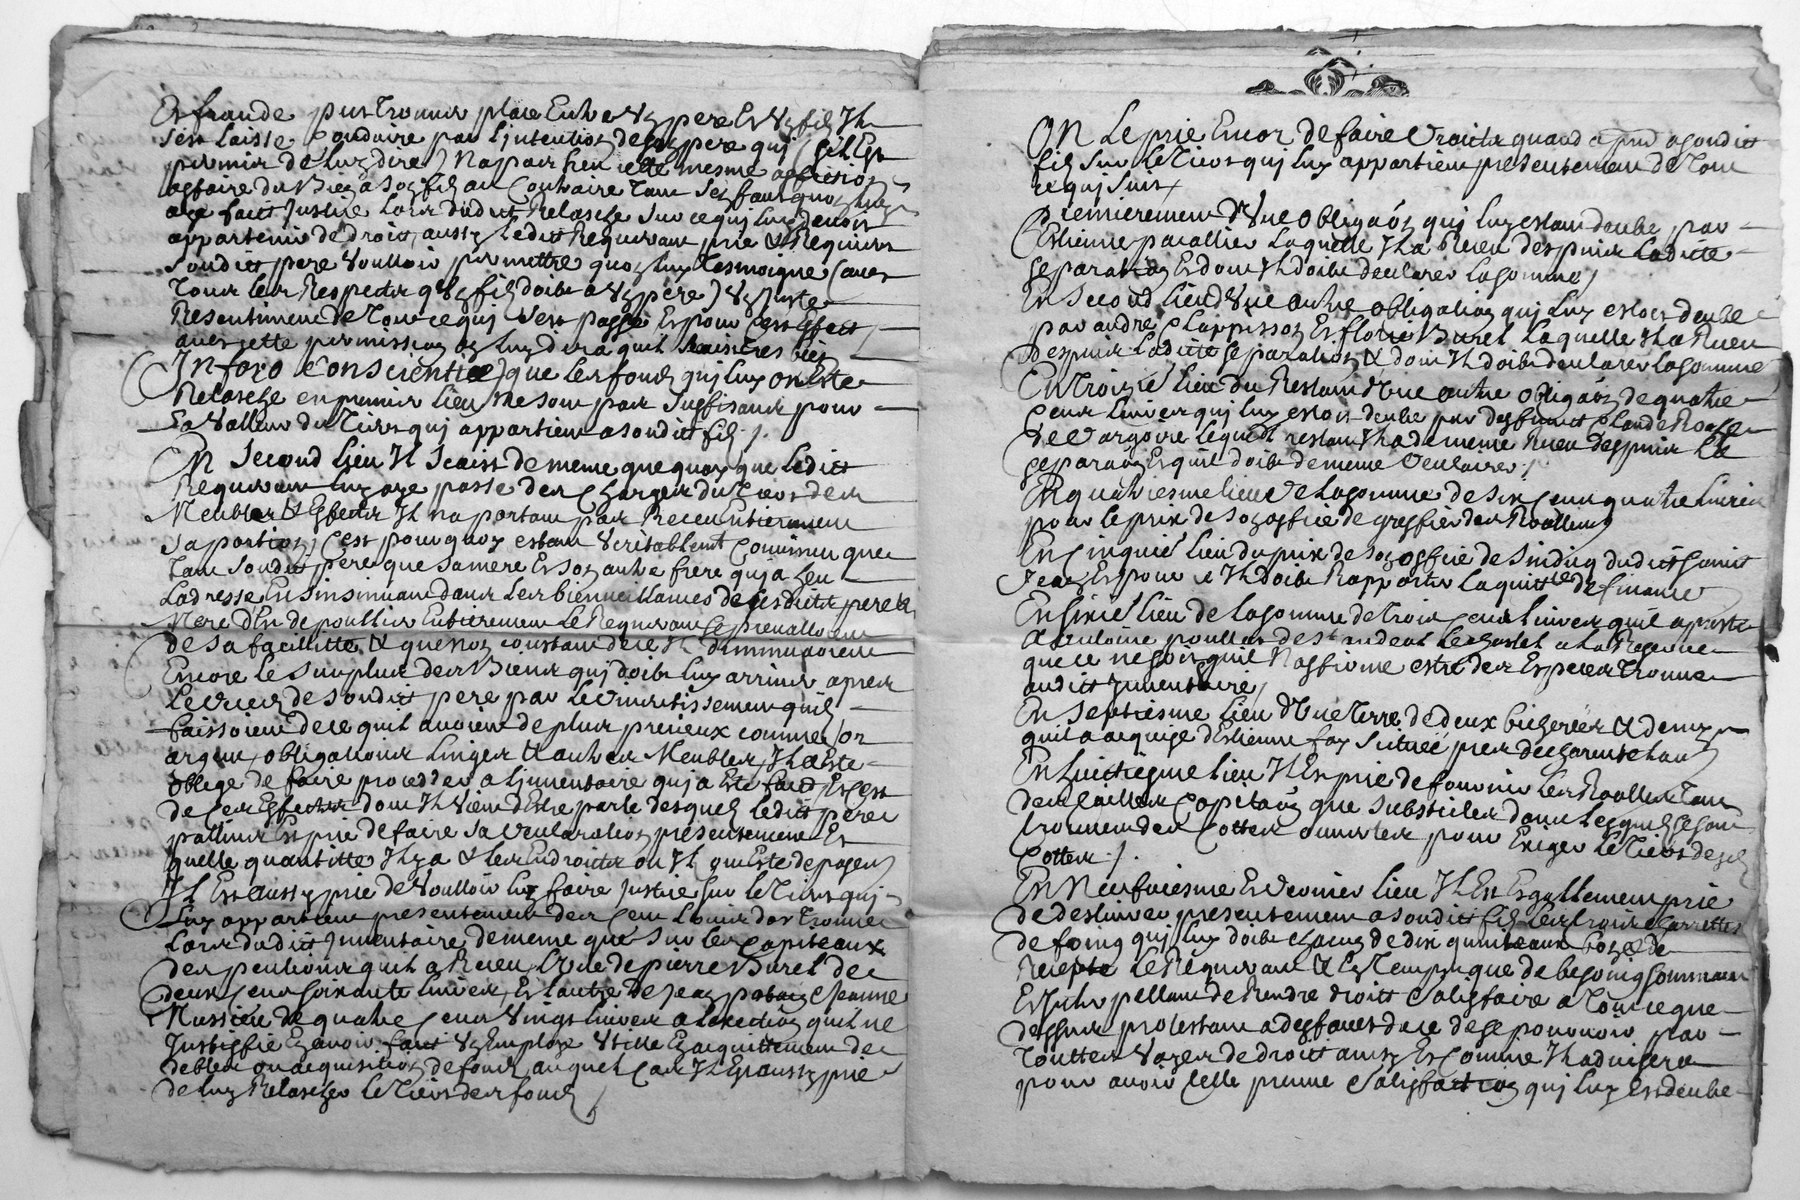 Et fraude puis trouver place Entre Un pere Et Un fils Il
sest Laissé Conduire par Lintention de son pere qui (sil Est
permis de luy dire) Na pas heu cette mesme affection
affaire du Bien a son fils au Contraire tant sen faut quon luy
aye fait Justice Lors dudit Relasche sur ce qui luy devoit
appartenir de droit, aussy ledit Requerant prie & Requiers
Sondit pere voulloir permettre quon luy tesmoigne (avec
tous les Respects qun fils doibt a Un pere) Un Juste
Resentiment de tout ce qui s'est passé Et pour Cest Effect
avec cette permission on luy dira quil scait tres bien
In foro Conscientiæ) que les fonds qui luy ont Este
Relasche en premier lieu ne sont pas suffisants pour
La Valleur du tiers qui appartient a sondit fils /.
En second lieu Il scait de meme que quoy que ledit
Requerant luy aye passé des charges du tiers des
Meubles & Effects Il na portant pas Receu Entierement
sa portion, C'est pourquoy estant veritablemt Convaincu que
tant sondit pere que sa mere Et son autre frere qui a heu
Ladresse En sinsinuant dans les bienveillances de sesdits pere &
Mere d'En depoullier Entierement le Requerant se prevalloient
de sa facillitté & que non constant de ce Il diminuoient
Encore le surplus des Biens qui doibt luy arriver apres
Le deces de sondit pere par le divertissement quils
faissoient de ce quil avoient de plus precieux comme or
argent, obligations linges & autres Meubles, Il a Este
oblige de faire proceder a linventaire qui a Esté faict, Et cest
de ces Effects dont Il vient d'Estre parle desquels ledit pere
Est prie de faire sa declaration presentement Et
quelle quantitte Il y a & les Endroits ou Il ont Esté deposes
Il Est aussy prie de voulloir luy faire Justice sur le tiers qui
Luy appartient presentement des Cent Louis dor trouvé
Lors dudit Inventaire de meme que sur les Capiteaux
des pentions quil a Receu, lune de pierre Burel de
deux Cent soixante livres, Et lautre de Jean Jeanne
Massieu de quatre Cent Vingt livres a lexection quil ne
Justiffie En avoir fait Un Employ Utille En acquittement de
debtes ou acquisition de fonds, auquel Cas Il Est aussy prié
de luy Relascher le tiers des fonds /

ON Le prie Encor de faire droict quand a pnt a sondit
fils sur le tiers qui luy appartient presentement de tout
ce qui suit,
Premierement d'Une Obligaõn qui luy estant deube par
Estienne parallier Laquelle Il a Receu despuis Laditte
separation Et dont Il doibt declarer La somme,
En second lieu d'Une autre obligation qui luy estoit deube
par andré Clappisson Et florie Burel Laquelle Il a Receu
despuis Laditte separation & dont Il doibt declarer la somme
En troizié lieu du Restant d'Une autre obligaõn de quatre
Cens livres qui luy estoit deube par deffunct Claude
de Vargoire lequel restant Il a de meme Receu despuis La
separaõn Et quil doibt de meme declairer /.
En quatriesme lieu de la somme de six Cent quatre livres
pour le prix de son office de greffier des Rolles
En Cinquié lieu du prix de son office de sindicq dudit saint
Jean Et pour ce Il doibt Rapporter La quittce de finance
En sixié lieu de la somme de trois Cent livres quil a presté
a Antoine poullas de St andeol le Chastel a la Reserve
que ce ne soit quil Naffirme estre des Especes trouvé
audit Inventaire,
En septiesme lieu d'Une terre de deux bicherées & demy
quil a acquise d'Estienne fay scituée pres de
En huictiesme lieu Il Est prie de fournir les Rolles tant
des tailles Capitaõn que subsides dans lesquels se sont
trouvés des Cottes ouvertes pour Exiger le tiers desd
Cottes /.
En Neufviesme Et dernier lieu Il Est Esgallement prié
de deslivrer presentement a sondit fils les trois charrettes
de foing qui luy doibt chacun de dix quintaux
le Requerant & En temps que de besoing sommant
Et Interpellant de Rendre droit & satisfaire a tout ce que
dessus protestant a deffaut de ce de se pourvoir par
touttes voyes de droit ainsy Et Comme Il advisera
pour avoir celle prenne satisfaction qui luy Est deube